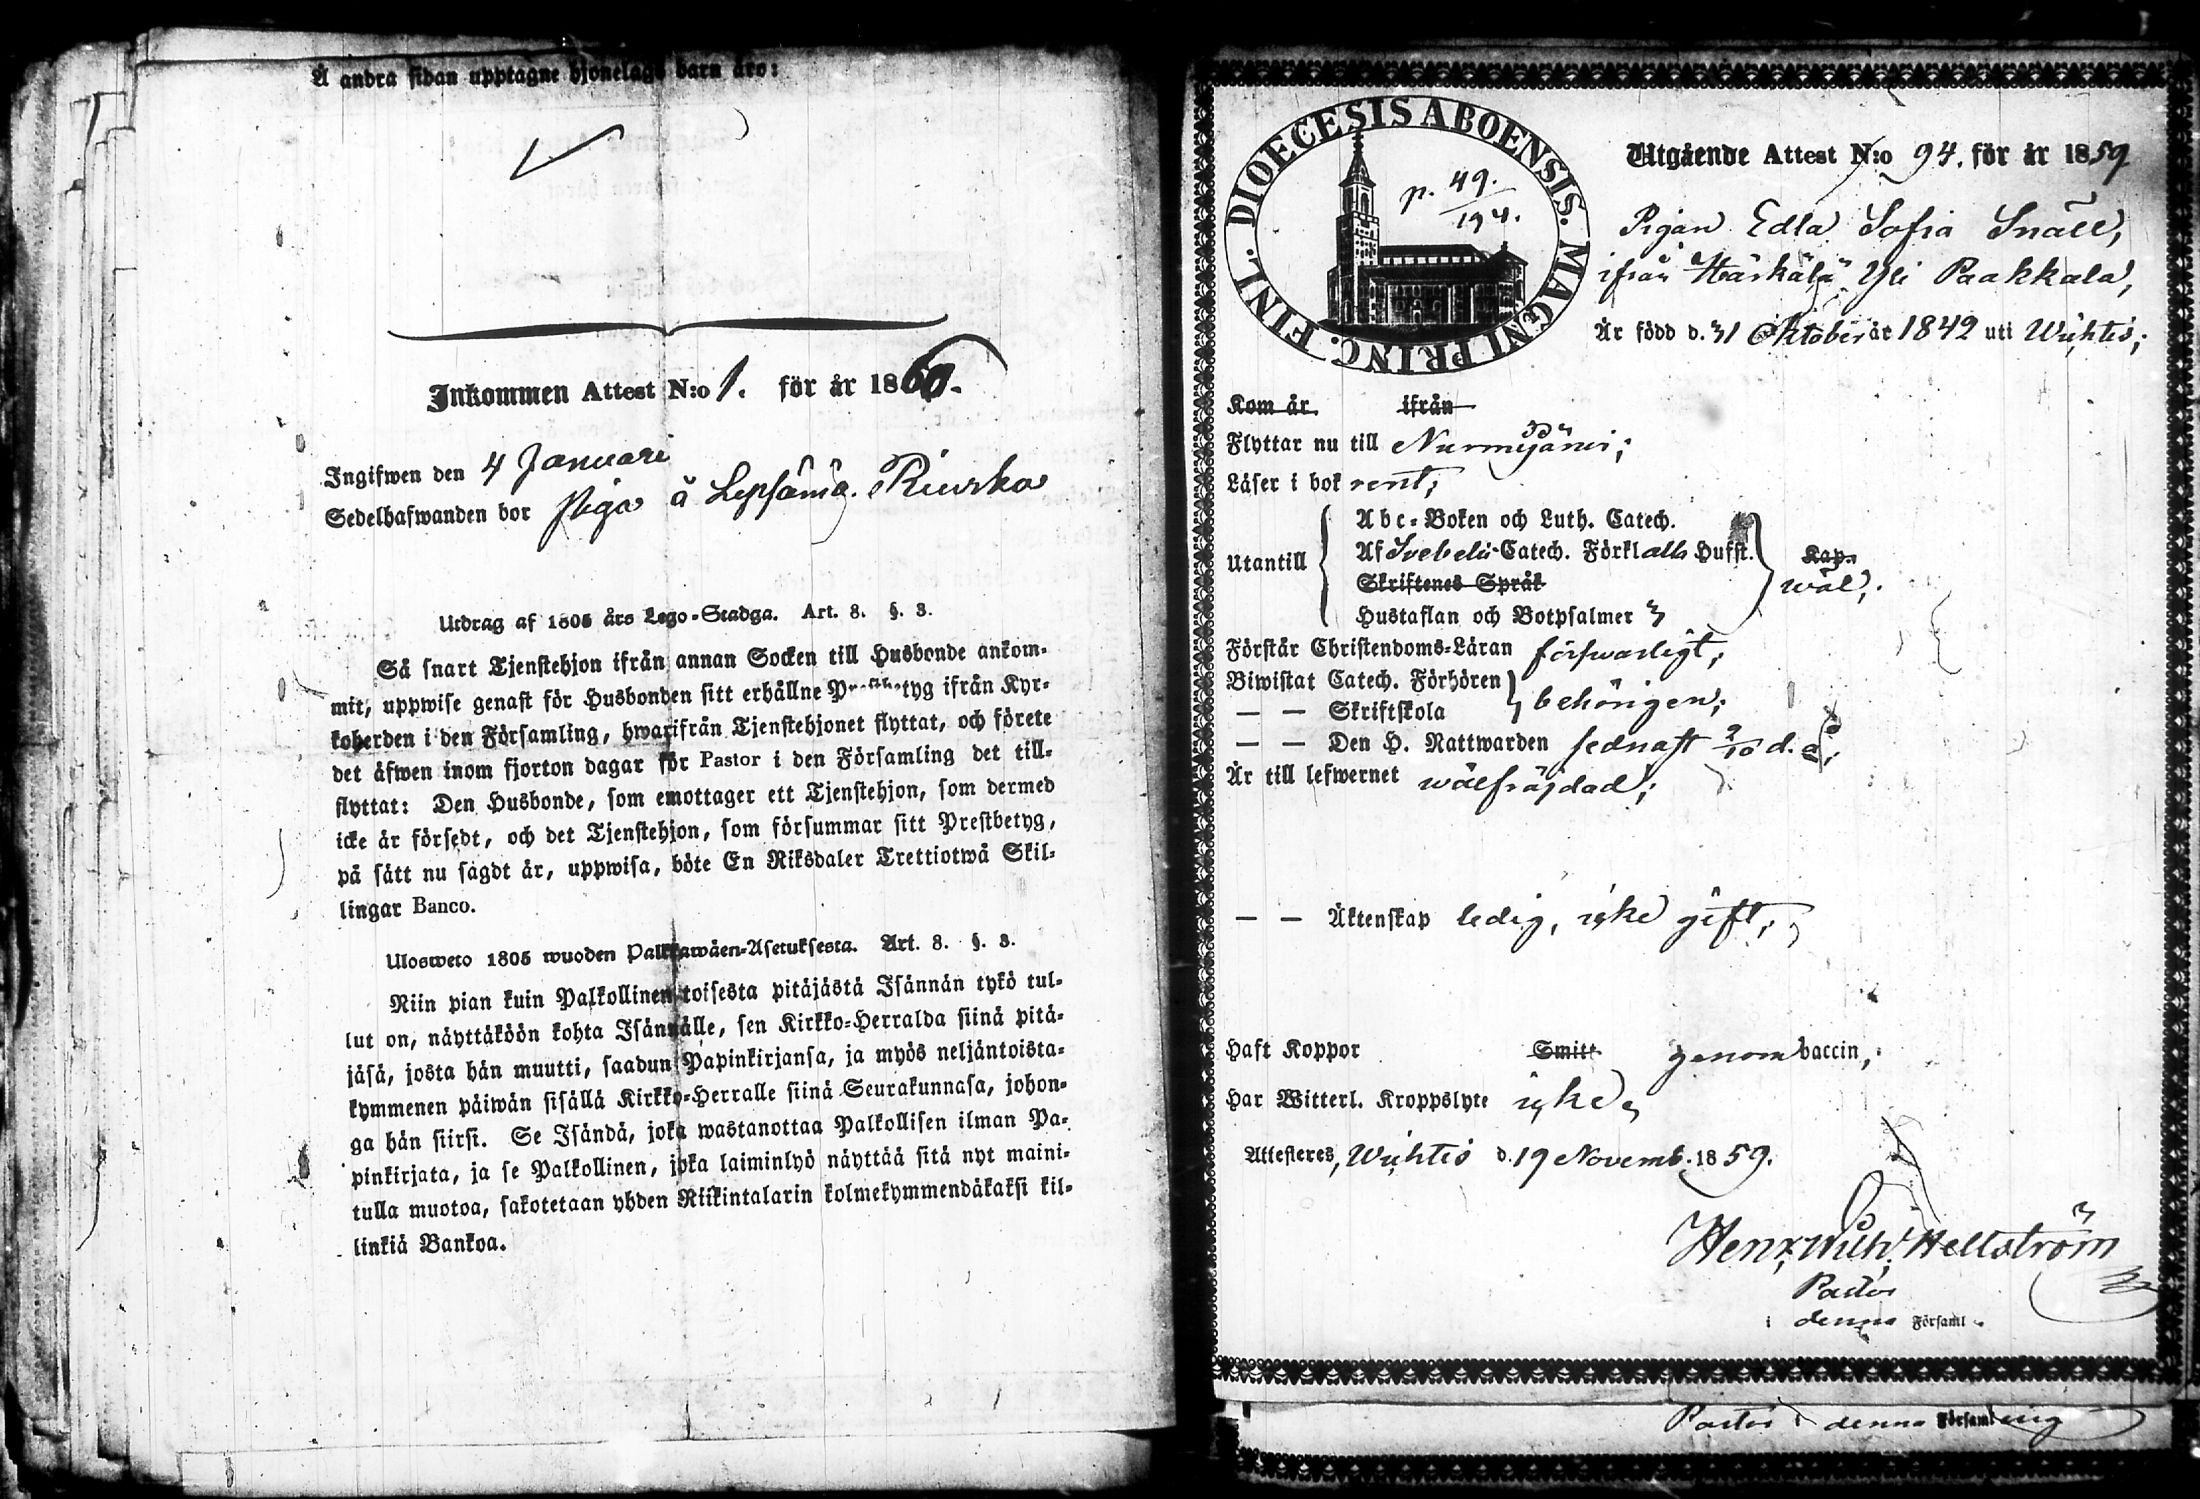 Å andra sidan upptagne hjonelags barn äro:
Inkommen Attest N:o 1. för år 1860.
Ingifwen den 4 Januari
Sedelhafwanden bor Piga å Lepsämä Riuska
Utdrag af 1805 års Lego-Stadga. Art. 8. §. 3.
Så snart Tjenstehjon ifrån annan Socken till Husbonde ankom-
mit, uppwise genast för Husbonden sitt erhållne Prestbetyg ifrån Kyr-
koherden i den Församling, hwarifrån Tjenstehjonet flyttat, och förete
det äfwen inom fjorton dagar för Pastor i den Församling det till-
flyttat: Den Husbonde, som emottager ett Tjenstehjon, som dermed
icke är försedt, och det Tjenstehjon, som försummar sitt Prestbetyg,
på sätt nu sagdt är, uppwisa, böte En Riksdaler Trettiotwå Skil-
lingar Banco.
Ulosweto 1805 wuoden Palkkawäen-Asetuksesta. Art. 8. §. 3.
Niin pian kuin Palkollinen toisesta pitäjästä Isännän tykö tul-
lut on, näyttäköön kohta Isännälle, sen Kirkko-Herralda siinä pitä-
jäsä, josta hän muutti, saadun Papinkirjansa, ja myös neljäntoista-
kymmenen päiwän sisällä Kirkko-Herralle siinä Seurakunnasa, johon-
ga hän siirsi. Se Isändä, joka wastanottaa Palkollisen ilman Pa-
pinkirjata, ja se Palkollinen, joka laiminlyö näyttää sitä nyt maini-
tulla muotoa, sakotetaan yhden Riikintalarin kolmekymmendäkaksi kil-
linkiä Bankoa.
DIOECESIS ABOENSIS. MAGNI PRINC. FINL.
p. 49.
194.
Utgående Attest N:o 94. för år 1859
Pigan Edla Sofia Snäll,
ifrån Härkälä Yli Paakkala,
Är född d. 31 Oktober år 1842 uti Wichtis;
Kom år ifrån
Flyttar nu till Nurmijärvi;
Läser i bok rent;
Utantill
Abc-Boken och Luth. Catech.
Af Svebelii Catech. Förkl alla Hufst.
Skriftenes Språk
Hustaflan och Botpsalmer
Kap.
wäl;
Förstår Christendoms-Läran förswarligt;
Biwistat Catech. Förhören
— — Skriftskola behörigen;
— — Den H. Nattwarden sednast 2/10 d. å;
Är till lefwernet wälfrägdad;
— — Äktenskap ledig, icke gift;
Haft Koppor Smitt genom vaccin,
Har Witterl. Kroppslyte icke
Attesteres, Wichtis d. 19 Novemb. 1859.
Henr. Wilh. Hellström
Pastor
i denna Församl.
Pastor i denna Församling